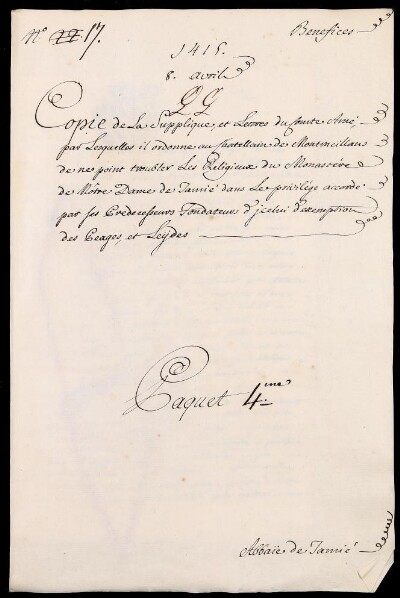 N° 22 17. Benefices
1415.
8. avril
QG
Copie de La Supplique, et Lettres du Comte Amé,
par Lesquelles il ordonne au Chatellain de Montmeillan
de ne point troubler Les Religieux du Monastére
de Nôtre Dame de Tamié dans Le privilége accordé
par ses Predecesseurs Fondateurs d'jcelui d'exemption
des Peages, et Leÿdes
Paquet 4.me
Abbaïe de Tamié